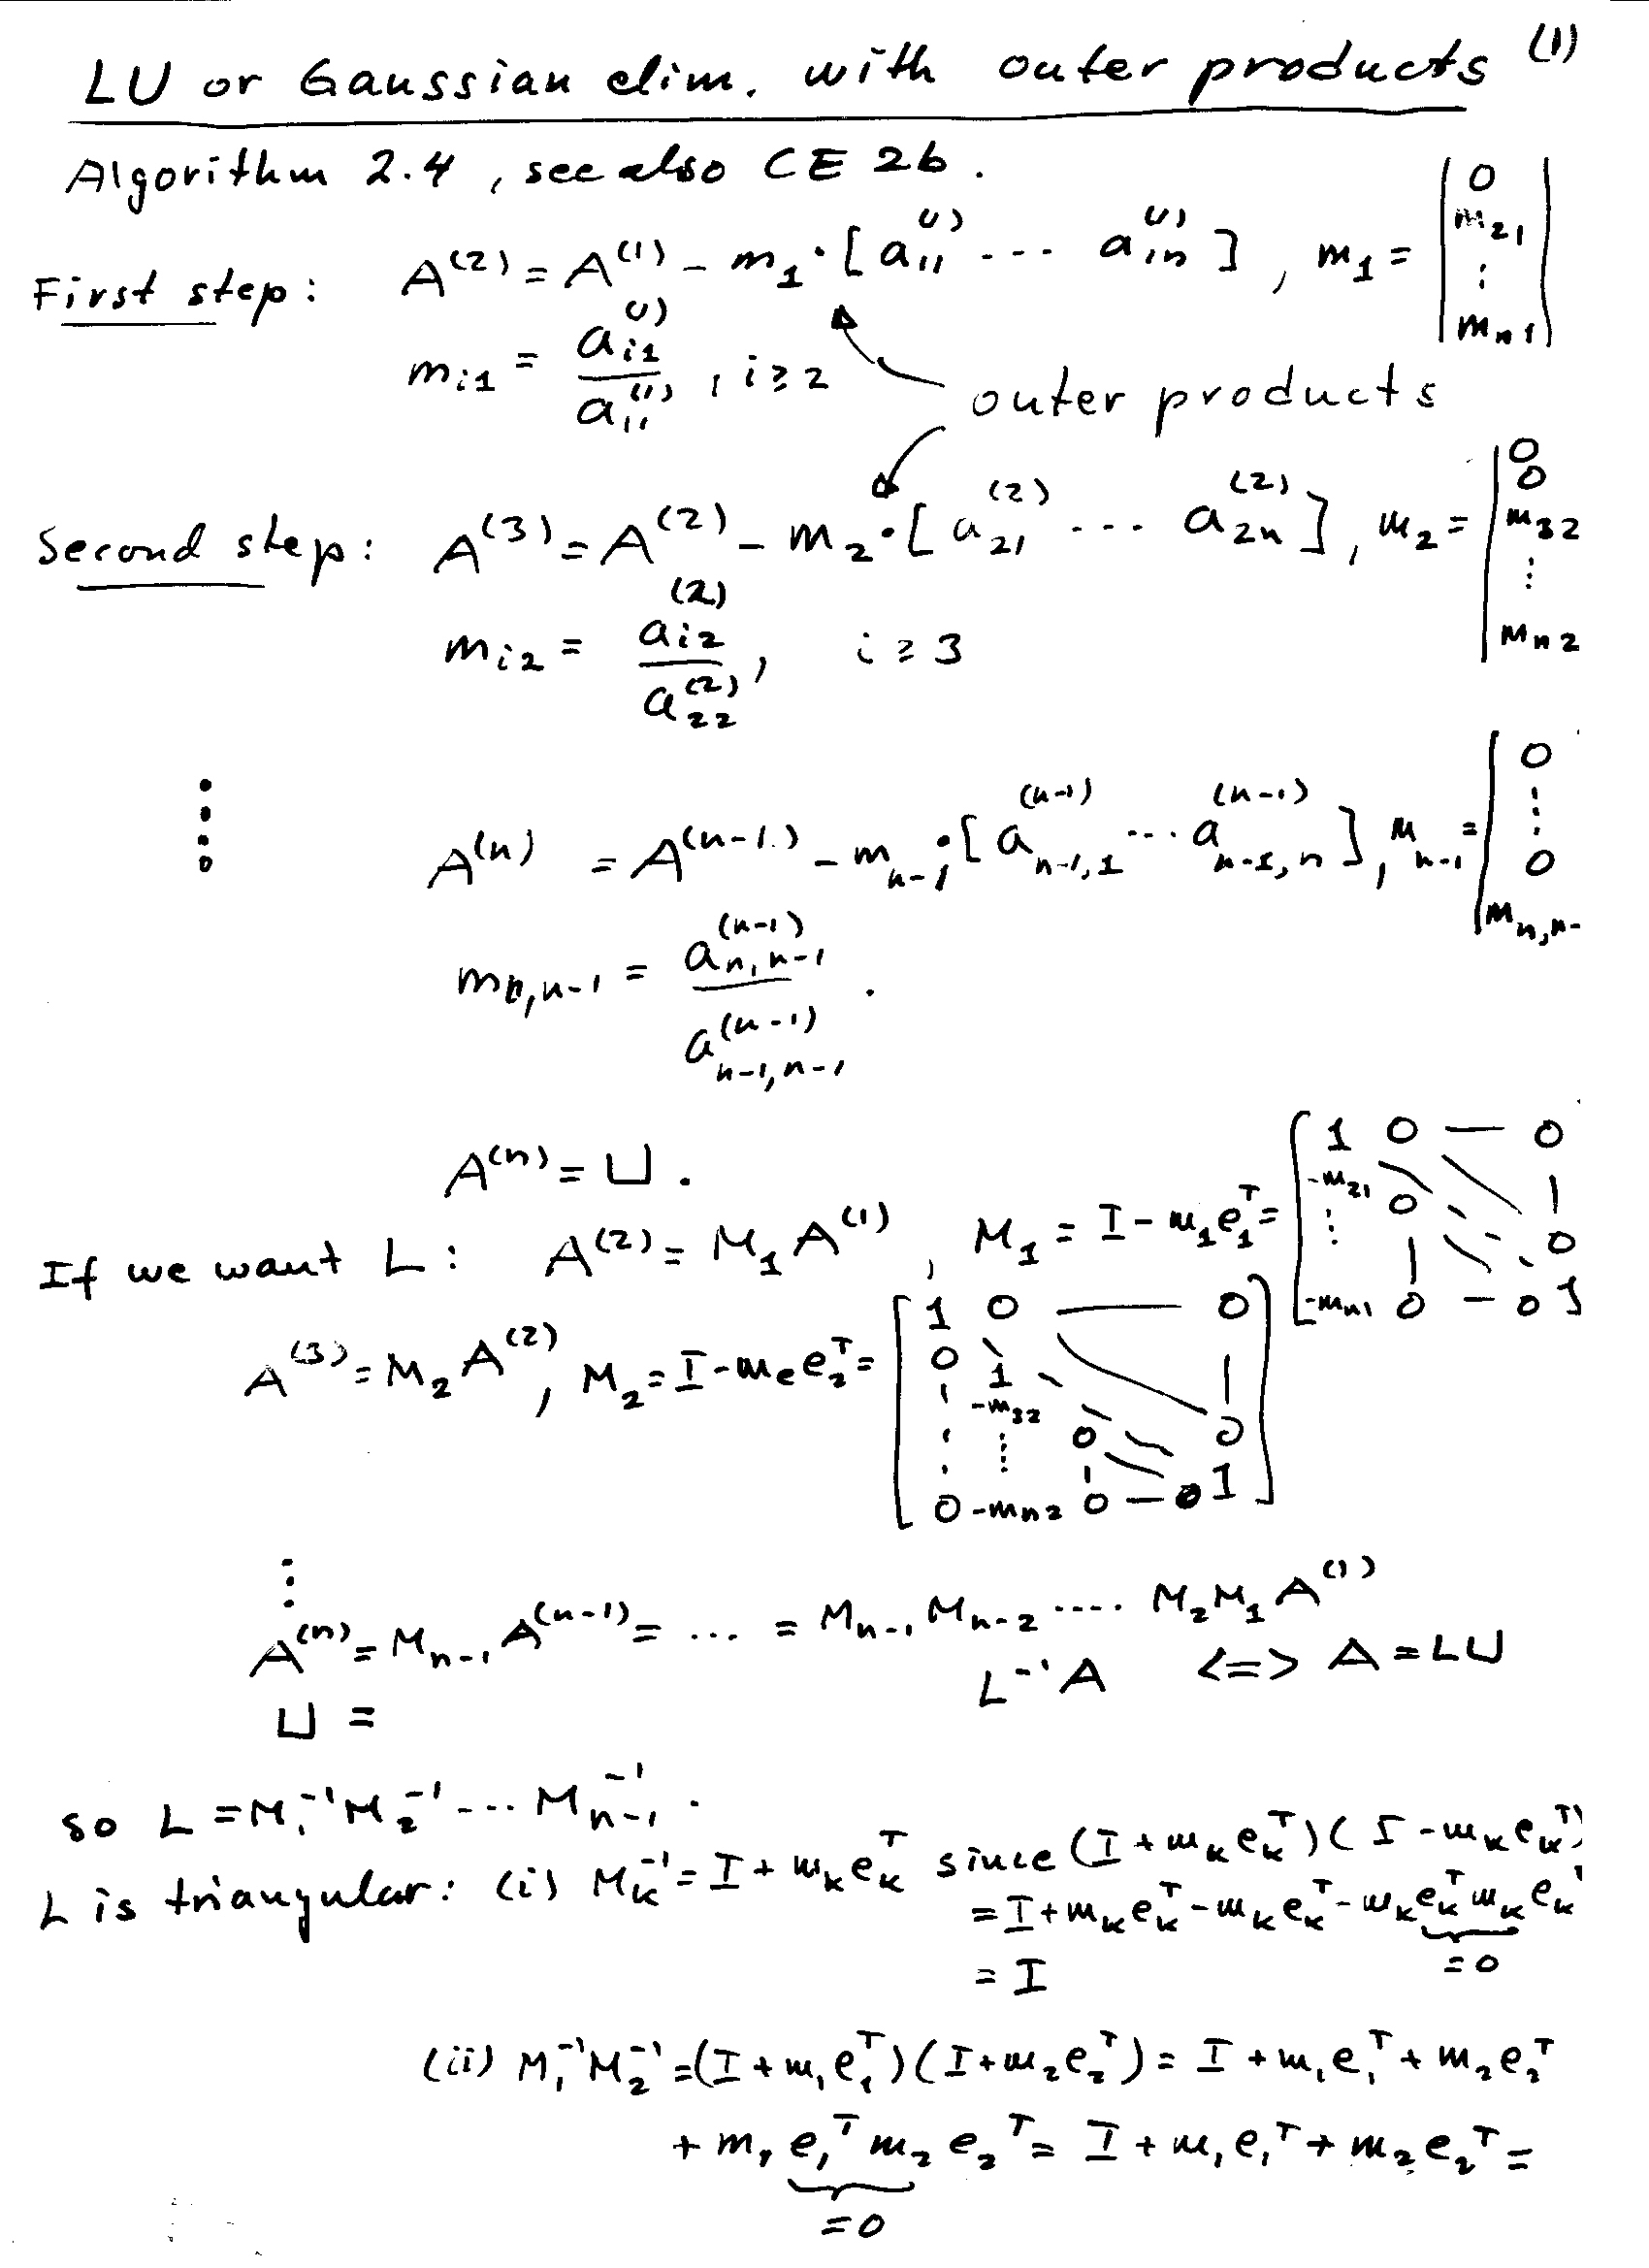 LU or Gaussian elim. with outer products (1)
Algorithm 2.4, see also CE 2b.
First step: A^(2) = A^(1) - m_1 · [a_11^(1) ... a_1n^(1)], m_1 = | 0 m_21 ⋮ m_n1 |
m_i1 = a_i1^(1) / a_11^(1), i ≥ 2
outer products
Second step: A^(3) = A^(2) - m_2 · [a_21^(2) ... a_2n^(2)], m_2 = | 0 0 m_32 ⋮ m_n2
m_i2 = a_i2^(2) / a_22^(2), i ≥ 3
⋮ A^(n) = A^(n-1) - m_n-1 · [a_n-1,1^(n-1) ... a_n-1,n^(n-1)], m_n-1 = [ 0 ⋮ 0 m_n,n-
m_n,n-1 = a_n,n-1^(n-1) / a_n-1,n-1^(n-1).
A^(n) = U.
If we want L: A^(2) = M_1 A^(1), M_1 = I - m_1 e_1^T = [ 1 0 — 0 -m_21 0 | ⋮ | 0 -m_n1 0 - 0 1
A^(3) = M_2 A^(2), M_2 = I - m_e e_2^T = [ 1 0 — 0 0 1 | ⋮ -m_32 0 0 ⋮ 1 0 -m_n2 0 — 0 1 ]
⋮
A^(n) = M_n-1 A^(n-1) = ... = M_n-1 M_n-2 .... M_2 M_1 A^(1)
U = L^-1 A <=> A = LU
so L = M_1^-1 M_2^-1 ... M_n-1^-1.
L is triangular: (i) M_k^-1 = I + m_k e_k^T since (I + m_k e_k^T)(I - m_k e_k^T)
= I + m_k e_k^T - m_k e_k^T - m_k e_k^T m_k e_k^T
=0
= I
(ii) M_1^-1 M_2^-1 = (I + m_1 e_1^T)(I + m_2 e_2^T) = I + m_1 e_1^T + m_2 e_2^T
+ m_1 e_1^T m_2 e_2^T = I + m_1 e_1^T + m_2 e_2^T =
=0